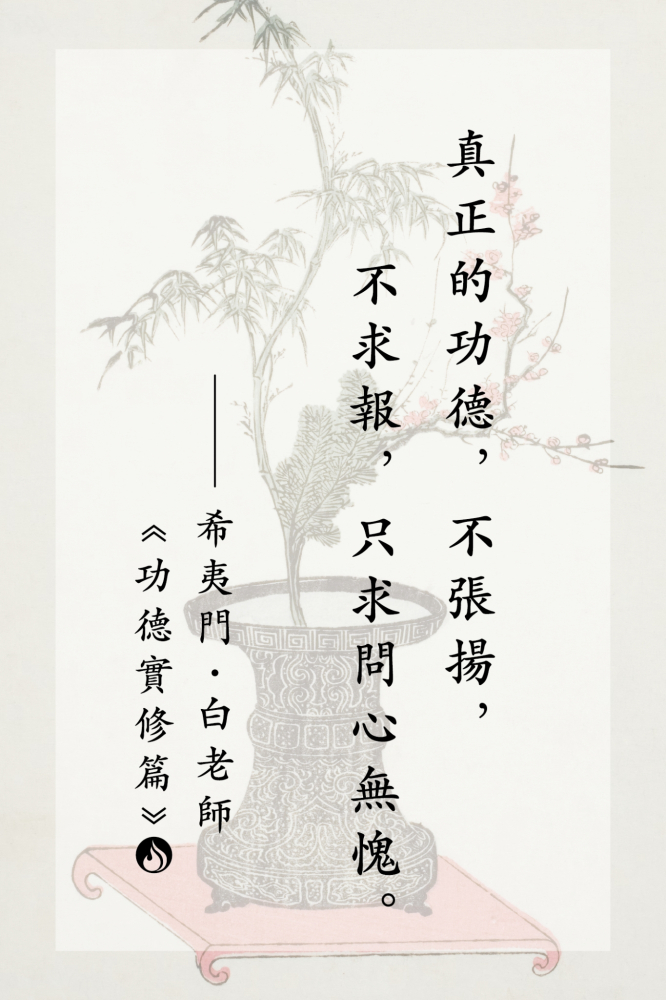 真正的功德，不張揚，
不求報，只求問心無愧。
——希夷門·白老師
《功德實修篇》